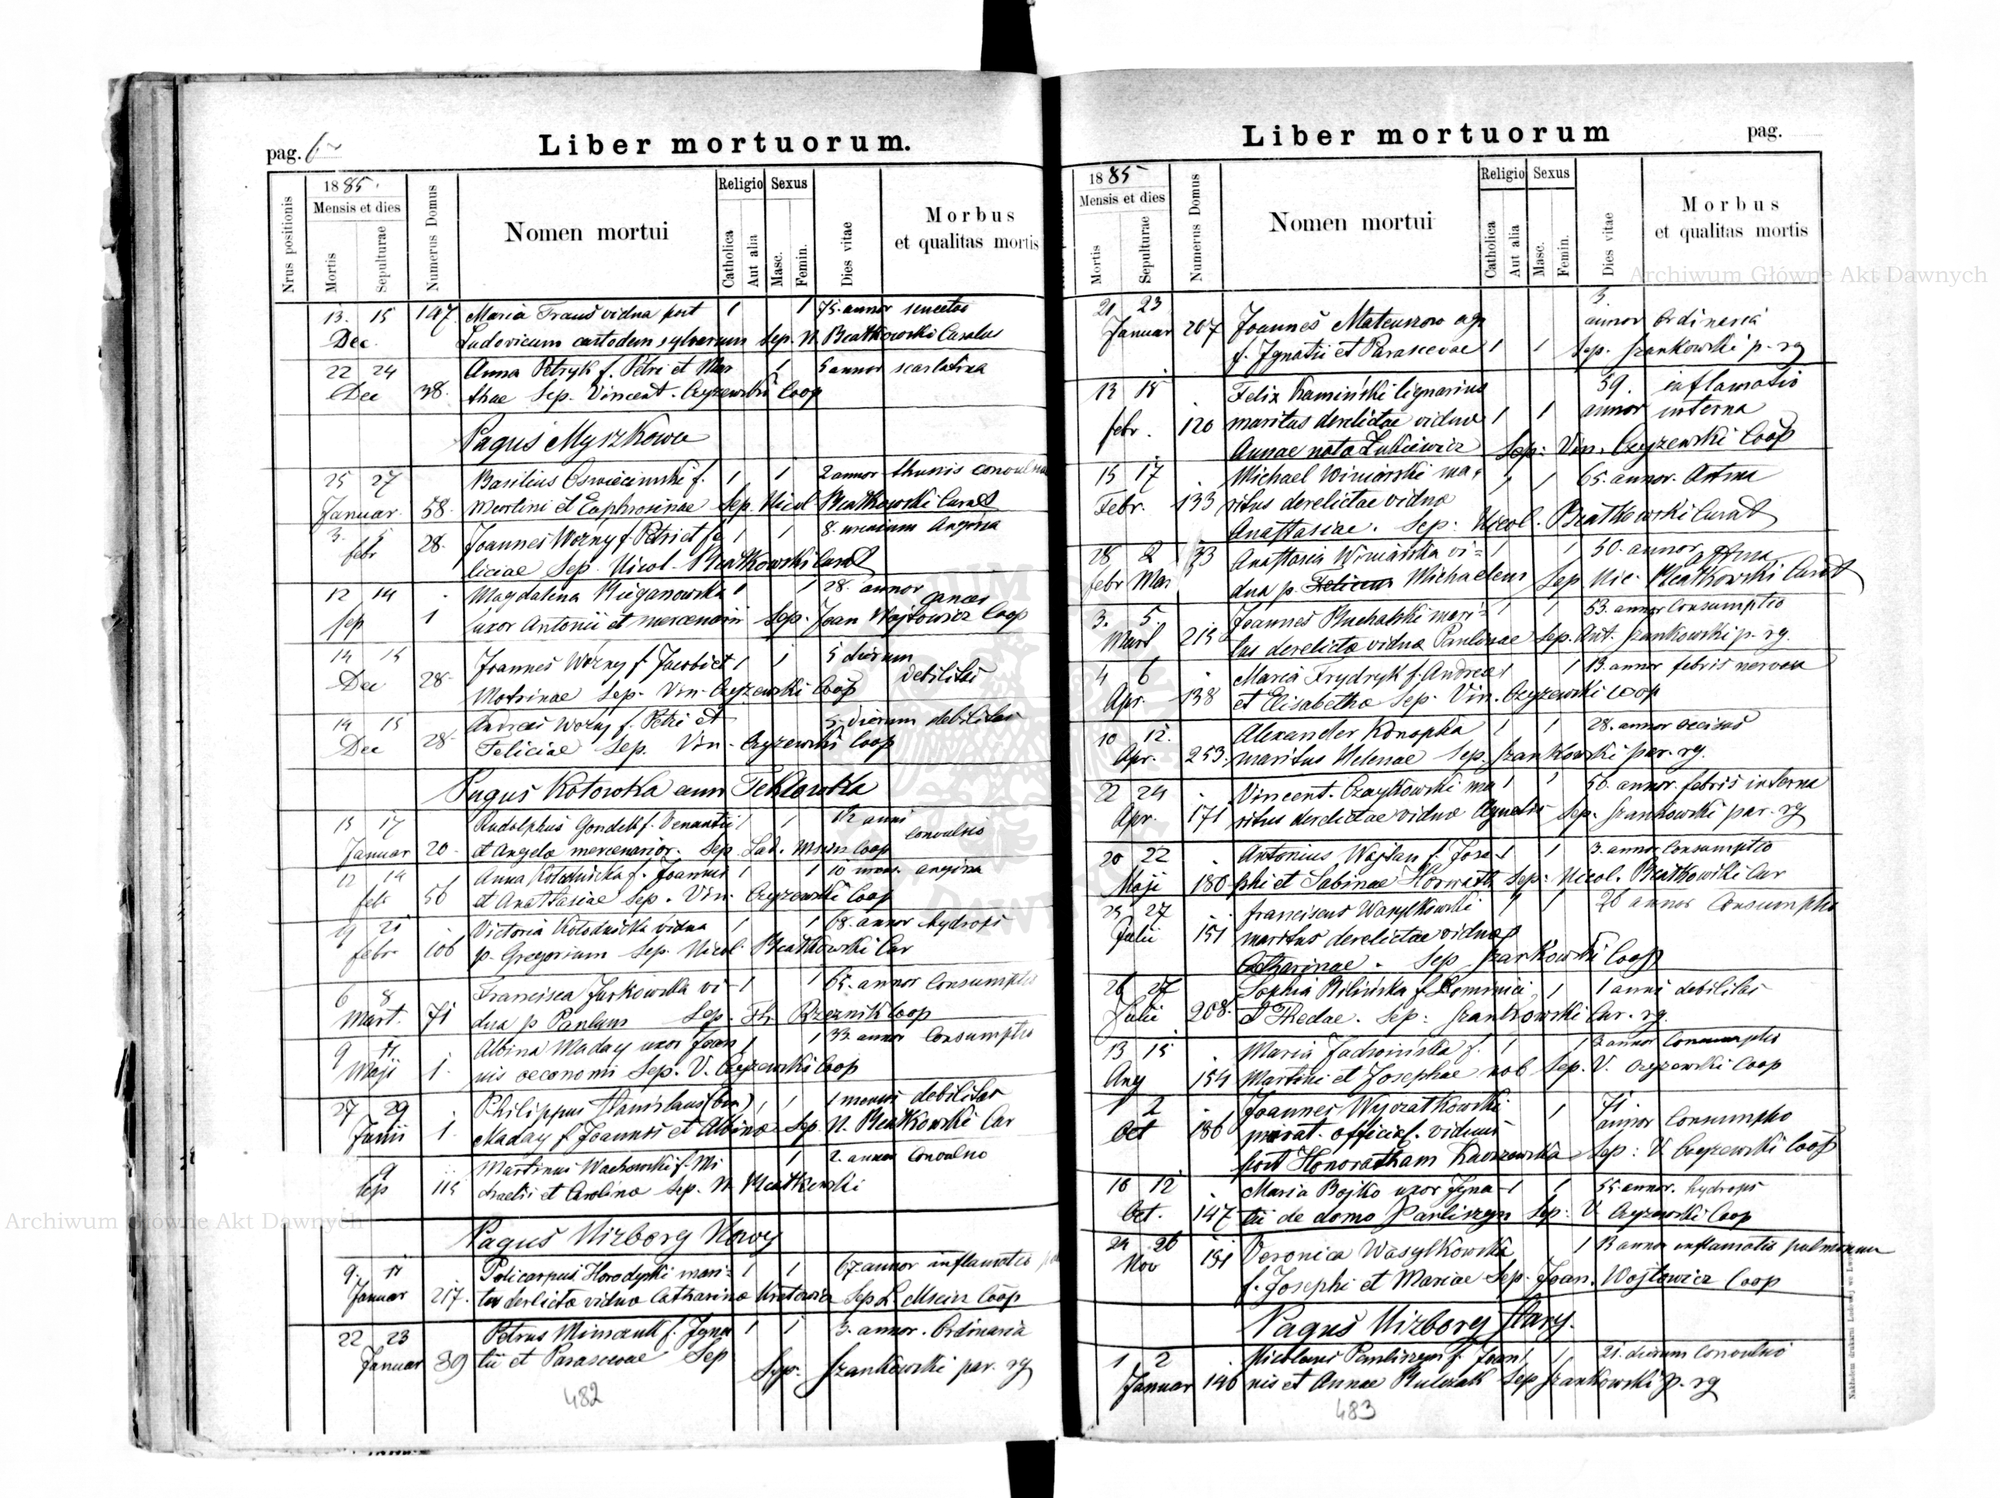 pag. 6
Liber mortuorum.
Nrus positionis
1885.
Mensis et dies
Mortis
Sepulturae
Numerus Domus
Nomen mortui
Religio
Catholica
Aut alia
Sexus
Masc.
Femin.
Dies vitae
Morbus
et qualitas mortis
13 15 147 Maria vidua post 1 1 75 annor senectus
Dec. Ludovicum custodem sylvarum Sep. N. Beatkowski Curatus
22 24 Anna Petryk f. Petri et Mar 1 1 5 annor scarlatina
Dec 38. thae Sep. Vincent. Czyżewski Coop
Pagus Myszkowce
25 27 Basilius Oswiecimski f. 1 1 2 annor convulsio
Januar 58. Martini et Euphrosinae Sep. Nicol Beatkowski Curat
3. 5 28. Joannes Wozny f. Petri et Fe 1 1 8. mensium Angina
febr liciae Sep. Nicol. Beatkowski Curat
12 14 Magdalina Bieganowska 1 1 28. annor
Sep 1 uxor Antonii et mercenarii Sep. Joan Wojtowicz Coop
14 15 Joannes Wozny f. Jacobi et 1 1 5 dierum
Dec 28. Motrinae Sep. Vin. Czyżewski Coop debilitas
14 15 Andreas Wozny f. Petri et 5 dierum debilitas
Dec 28. Feliciae Sep. Vin. Czyżewski Coop
Pagus Kotowka cum Teklowka
15 17 Rudolphus Gondek f. Venantii 1 1 1½ anni
Januar 20. et Angela mercenarior. Sep. Lad. Msciz Coop Convulsio
12 14 Anna Kolodnicka f. Joannis 1 1 10 mens. angina
feb 56 et Anastasiae Sep. Vin. Czyżewski Coop
19 21 Victoria Kolodnicka vidua 1 1 68. annor hydrops
febr. 106 p. Gregorium Sep. Nicol. Beatkowski Cur
6 8 Francisca Jurkowska vi- 1 1 65. annor Consumptio
Mart. 71 dua p Paulum Sep. Th. Brzeznik Coop
9 11 Albina Maday uxor Joan 1 1 33 annor Consumptio
Maji 1. nis oeconomi Sep. V. Czyżewski Coop
27 29 Philippus Stanislaus (bin) 1 1 1 mensis debilitas
Junii 1. Maday f Joannis et Albinae Sep N. Beatkowski Cur
9 Martinus Wachowski f. Mi 1 2. annor Convulsio
Sep 115 chaelis et Carolina Sep. N. Beatkowski
Pagus Nizborg Nowy
9. 11 Policarpus Horodyski mari- 1 1 67 annor inflamatio
Januar 217. tus derelictae viduae Catharinae Kratowicz Sep L. Msciz Coop
22 23 Petrus Mimczuk f. Igna 1 1 3. annor. Ordinaria
Januar 39 tii et Parascevae Sep Sep. Szankowski par. rg
482
Liber mortuorum
pag.
1885
Mensis et dies
Mortis
Sepulturae
Numerus Domus
Nomen mortui
Religio
Catholica
Aut alia
Sexus
Masc.
Femin.
Dies vitae
Morbus
et qualitas mortis
21 23 3.
Januar 207 Joannes Mateuszow agr annor Ordinaria
f. Ignatii et Parascevae 1 1 Sep. Szankowski p. rg
13 15 Felix Kamiński lignarius 59. inflamatio
febr. 120 maritus derelictae viduae 1 1 annor interna
Annae nata Lukiewicz Sep: Vin. Czyżewski Coop
15 17 Michael Winiarski ma- 1 1 65. annor. Astma
Febr. 133 ritus derelictae viduae
Anastasiae. Sep: Nicol. Beatkowski Curat
28 2 33 Anastasia Winiarska vi- 1 1 50. annor astma
febr Mar dua p. Michaelem Sep Nic. Beatkowski Curat
3. 5. Joannes Puchalski mari- 1 1 53. annor Consumptio
Mart 215 tus derelictae viduae Paulinae Sep. Ant. Szankowski p. rg.
4 6 Maria Frydryk f. Andreae 1 1 13. annor febris nervosa
Apr. 138 et Elisabetha Sep. Vin. Czyżewski coop
10 12. Alexander Konopka 1 1 28. annor occisus
Apr. 253. maritus Helenae Sep. Szankowski par. rg.
22 24 Vincent. Czaykowski ma 1 1 56. annor. febris interna
Apr. 171 ritus derelictae viduae Agnetis Sep. Szankowski par. rg
20 22 Antonius Wojtan f. Jose- 1 1 3. annor Consumptio
Maji 180 phi et Sabinae Horwath Sep: Nicol. Beatkowski Cur
25 27 Franciscus Wasylkowski 1 1 26 annor Consumptio
Julii 151 maritus derelictae viduae
Catharinae. Sep Szankowski Coop
26 27 Sophia Bilińska f. Dominici 1 1 anni debilitas
Julii 208. Sep: Szankowski Cur. rg.
13 15 Maria f. 1 1 3 annor Consumptio
Aug 154 Martini et Josephae nob Sep. V. Czyżewski Coop
1 2 Joannes Wyszatkowski 1 71.
Oct 186 privat. official. viduus annor Consumptio
post Honoratham Sep: V. Czyżewski Coop
10 12 Maria Bojko uxor Igna- 1 1 55 annor. hydrops
Oct. 147 tii de domo Pawliszyn Sep: V. Czyżewski Coop
24 26 Veronica Wasylkowska 1 13 annor inflamatio pulmonum
Nov 151 f. Josephi et Mariae Sep. Joan. Wojtowicz Coop
Pagus Nizborg Stary.
1 2 Nicolaus Pawliszyn f. Joan 1 1 21. dierum Convulsio
Januar 140 nis et Annae Sep Szankowski p. rg
483
Archiwum Główne Akt Dawnych
Archiwum Główne Akt Dawnych